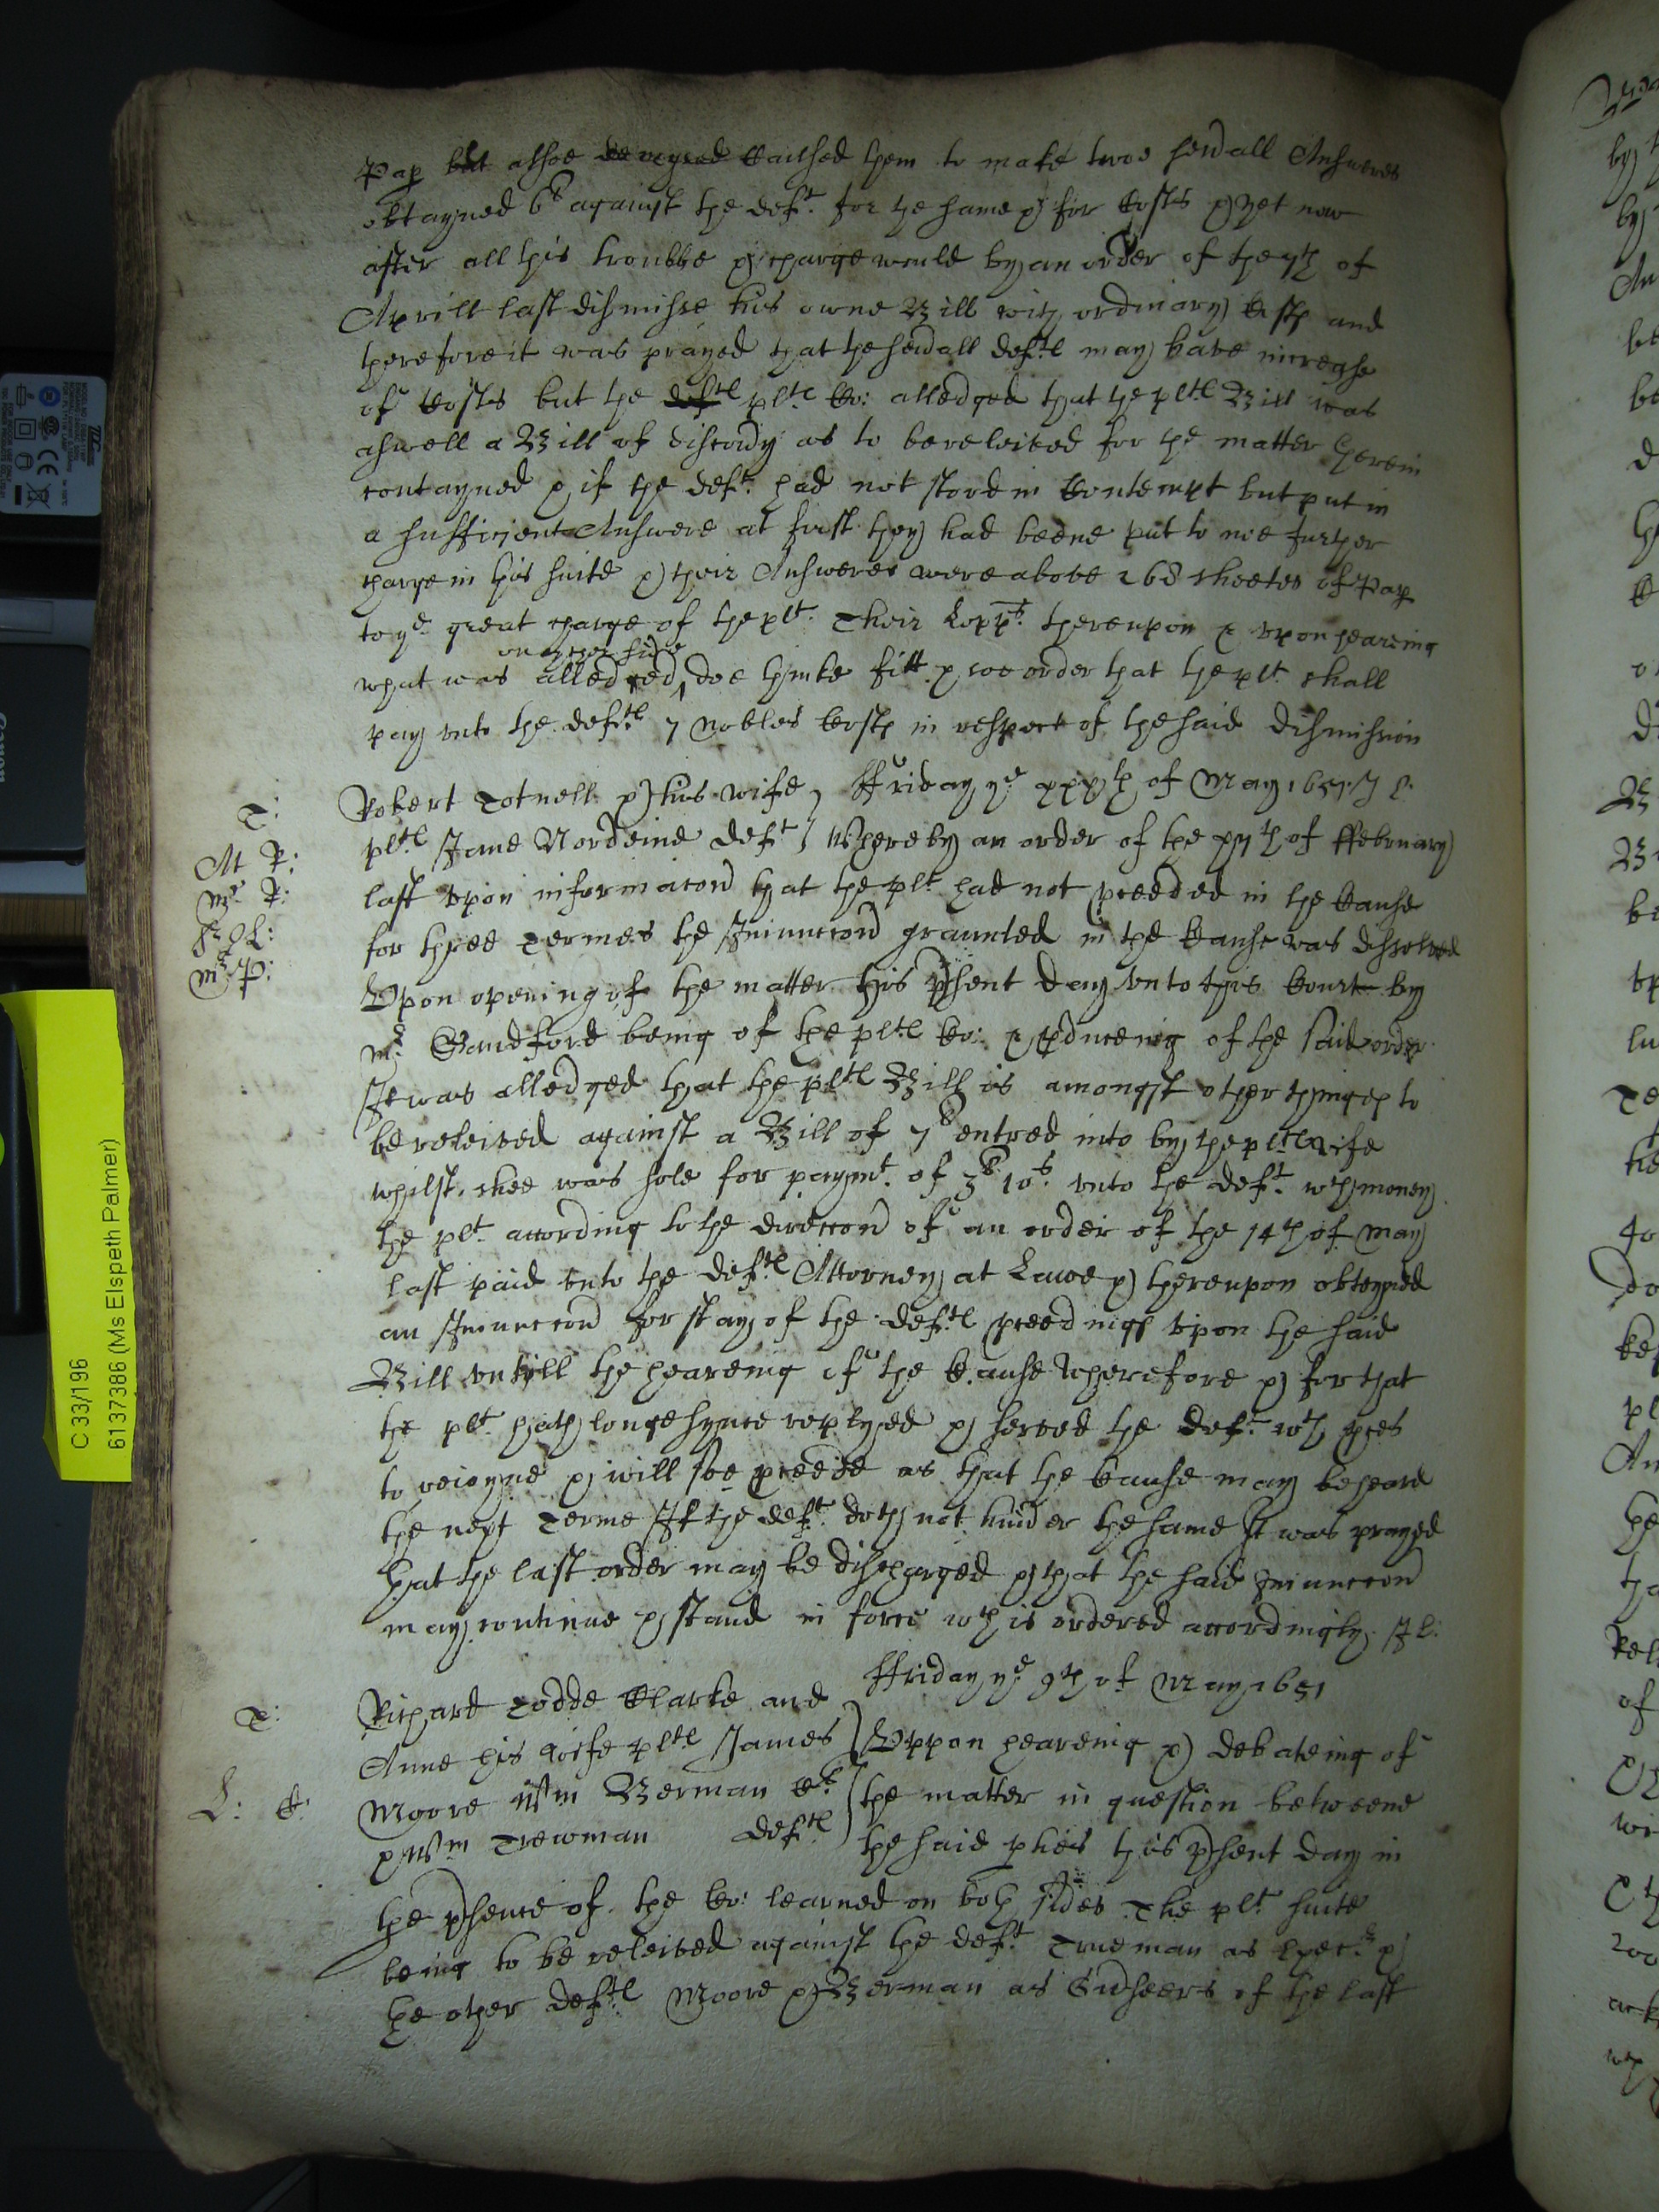 Pap but alsoe caused them to make two sevall Answeres
obtayned 6li against the deft. for the same & for Costs & yet now
after all this trouble & charge would by an order of the 9th of
Aprill last dismisse his owne Bill with ordinary Costs and
therefore it was prayed that the sevall defts may have increase
of Costs but the defts plts Co: alledged that the plts Bill was
aswell a Bill of discovy as to be releived for the matter therein
contayned & if the deft. had not stood in Contempt but put in
a sufficient Answere at first they had beene put to noe further
charge in this suite & their Answeres were above 268 sheetes of Pap
to ye great charge of the plt. Their Lopps. thereupon & upon heareing
on either side
what was alledged doe thinke fitt & soe order that the plt. shall
pay unto the defts 7 nobles Costs in respect of the said dismission
T:
Robert Totnell & his wife ffriday ye xxxth of May 1651 J L.
plts Jane Nordeine deft Whereby an order of the xvijth of ffebruary
At P:
last upon informacon that the plt. had not pceeded in the Cause
Mr P:
for three Termes the Iniunccon graunted in the Cause was dissolved
Upon opening of the matter this psent day unto this Court by
mr P:
mr Sandford being of the plts Co: & pduceing of the said order
It was alledged that the plts Bill is amongst other things to
be releived against a Bill of 7li entred into by the plts wife
whilst shee was sole for paymt. of 3li 10s. unto the deft. wch money
the plt. according to the direccon of an order of the 14th of May
last paid unto the defts Attorney at Lawe & thereupon obteyned
an Iniunccon for stay of the defts pceedings upon the said
Bill untill the heareing of the Cause Wherefore & for that
the plt. hath longe synce replyed & served the deft. wth pces
to reioyne & will soe pceede as that the Cause may be heard
the next Terme If the deft. doth not hinder the same It was prayed
that the last order may be discharged & that the said Iniunccon
may continue & stand in force wch is ordered accordingly. J L:
ffriday ye 9th of May 1651
T:
Richard Todde Clarke and
Anne his wife plts James Uppon heareing & debateing of
L: C:
Moore Wm Berman the matter in question betweene
& Wm Trewman defts the said pties this psent day in
the psence of the Co: learned on both sides The plt. suite
being to be releived against the deft. Trueman as Execr. &
the other defts Moore & Berman as Ovseers of the last
C 33/196
61377386 (Ms Elspeth Palmer)